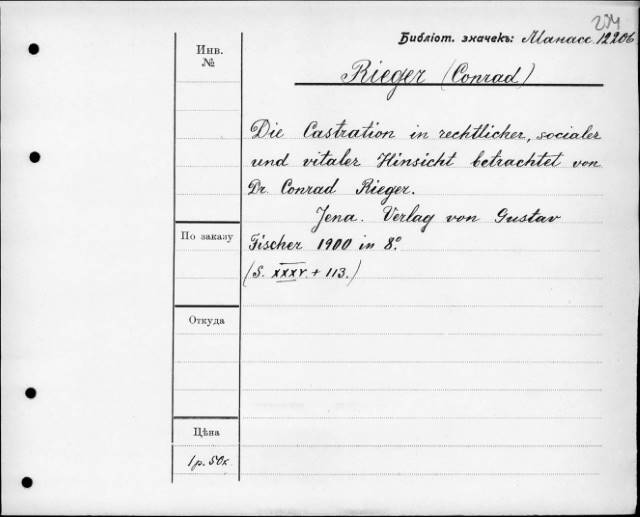 234
Библіот. значекъ: Манасс. 12206
Инв.
№
Rieger (Conrad)
Die Castration in rechtlicher, socialer
und vitaler Hinsicht betrachtet von
Dr. Conrad Rieger.
Jena. Verlag von Gustav
По заказу
Fischer 1900 in 8°.
(S. XXXV. + 113.)
Откуда
Цѣна
1 р. 50 к.